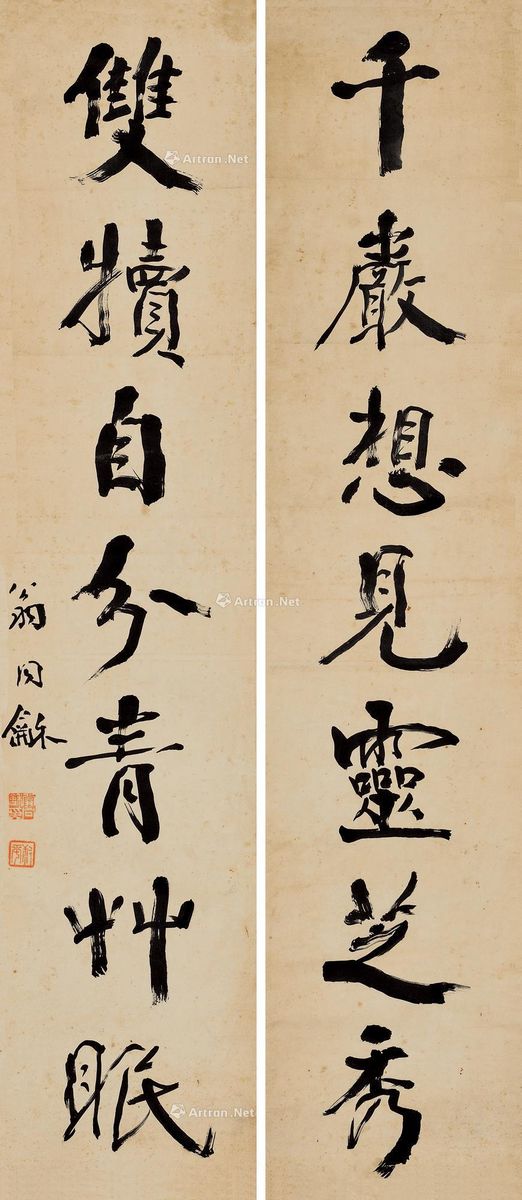 千巖想見靈芝秀
雙犢自分青艸眠
翁同龢
Artron.Net
Artron.Net
Artron.Net